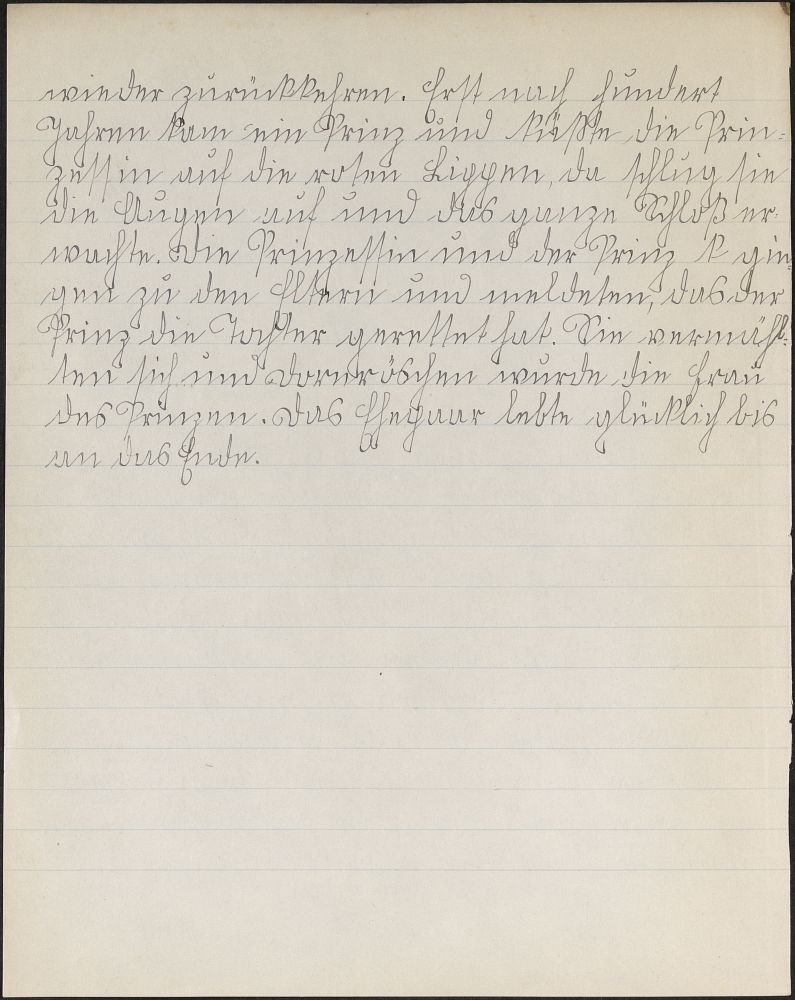 wieder zurückkehren. Erst nach hundert
Jahren kam ein Prinz und küßte die Prin-
zessin auf die roten Lippen, da schlug sie
die Augen auf und das ganze Schloß er-
wachte. Die Prinzessin und der Prinz k gin
gen zu den Eltern und meldeten, das der
Prinz die Tochter gerettet hat. Sie vermähl-
ten sich und Dornröschen wurde die Frau
des Prinzen. Das Ehepaar lebte glücklich bis
an das Ende.